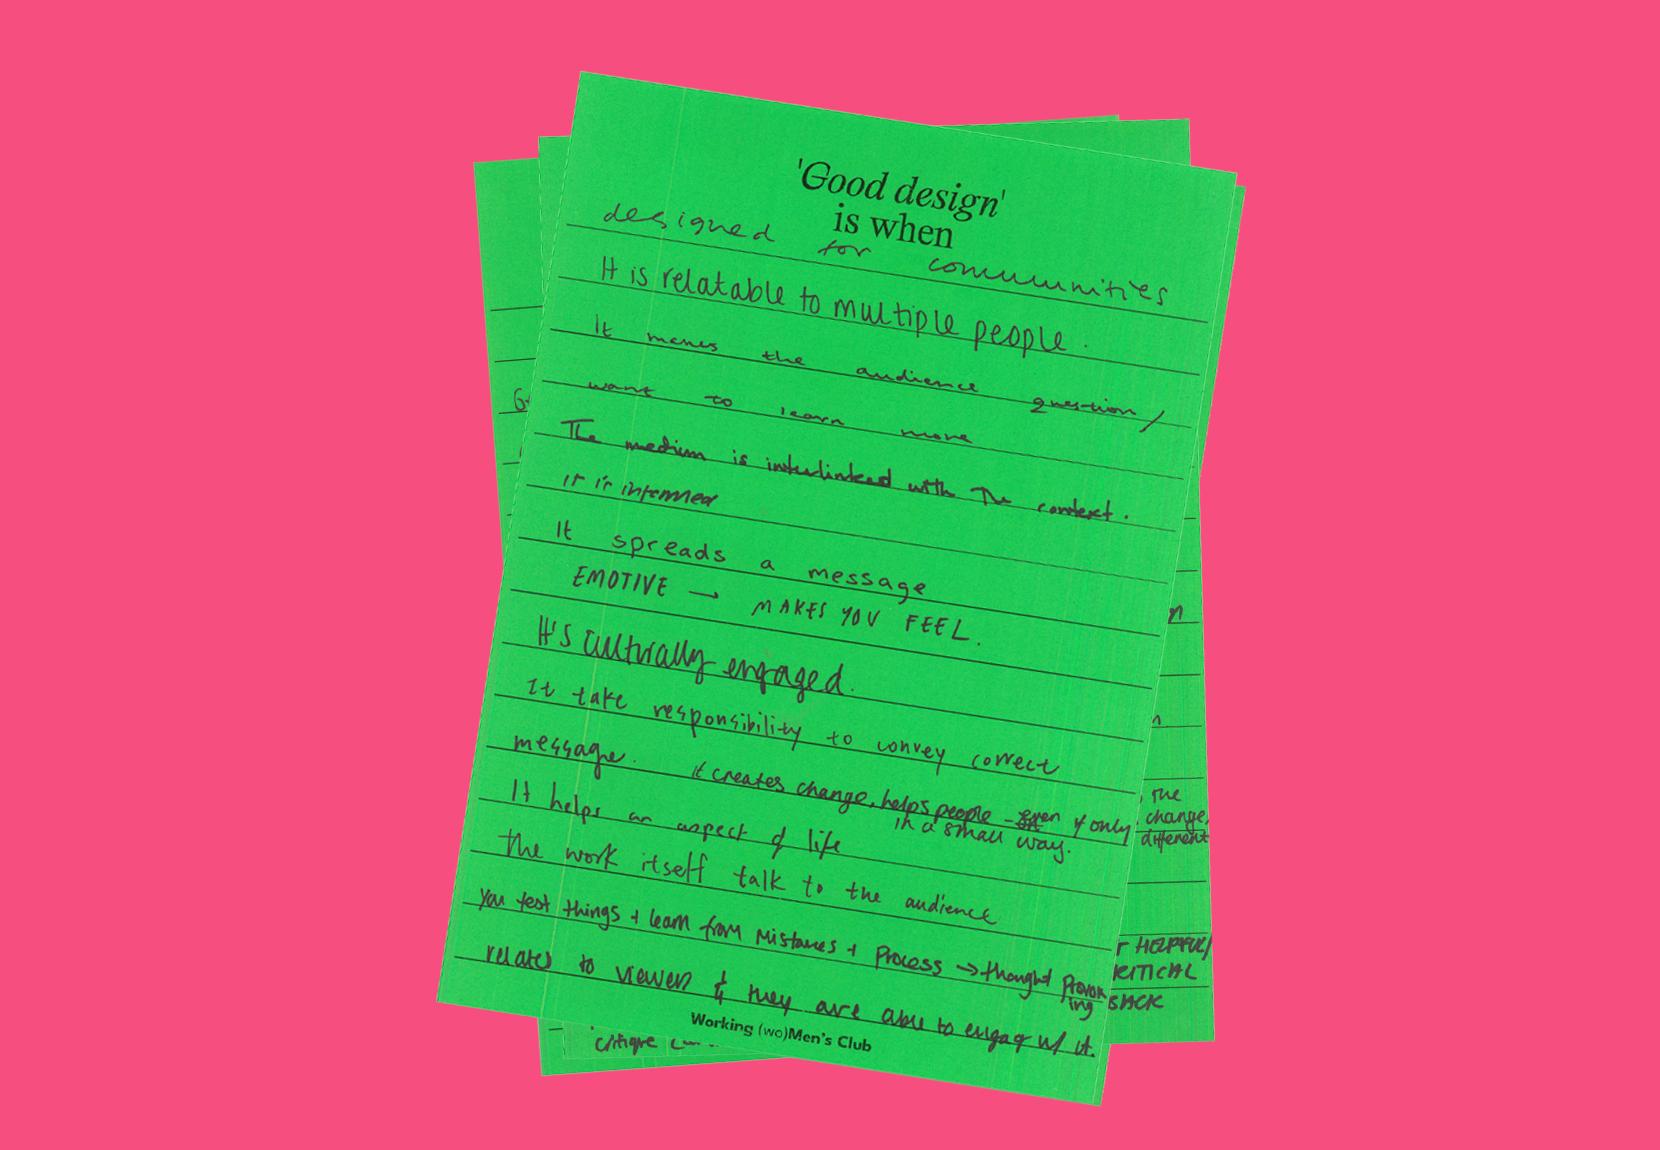 'Good design'
is when
designed for communities
It is relatable to multiple people.
It makes the audience question/
want to learn more
The medium is interlinked with The context.
it is informed
It spreads a message
EMOTIVE → MAKES YOU FEEL.
It's culturally engaged.
It take responsibility to convey correct
message. it creates change, helps people - even if only
in a small way.
It helps an aspect of life
the work itself talk to the audience
you test things + learn from Mistakes + Process → thought Provok
ing
relates to viewer & they are able to engage w/ it.
Working (wo)Men's Club
the
change,
different
HELPFUL/
BACK
critique